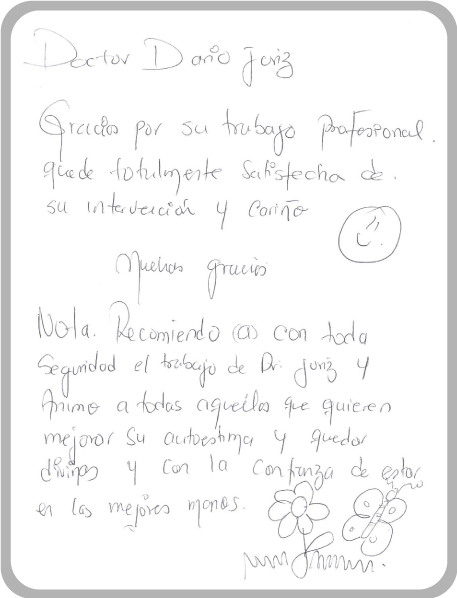 Doctor Dario Juriz
Gracias por su trabajo profesional.
quede totalmente satisfecha de.
su intervención y cariño
Muchas gracias
Nota. Recomiendo (a) con toda
seguridad el trabajo de Dr. Juriz y
Animo a todas aquellas que quieren
mejorar su autoestima y quedar
divinas y con la confianza de estar
en las mejores manos.